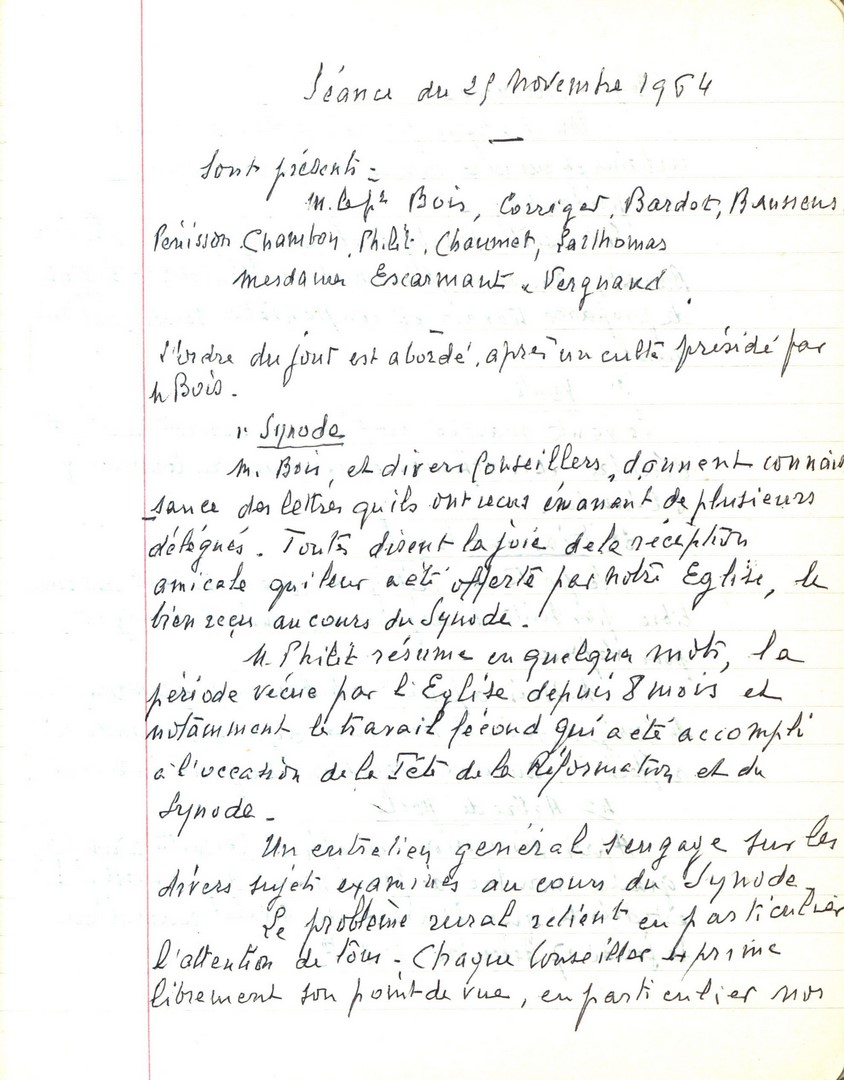 Séance du 25 Novembre 1964
Sont présents :
M. le pr Bois, Corriger, Bardot, Baussens
Penisson, Chambon, Philit, Chaumet,
Mesdames Escarmant & Vergnaud.
L'ordre du jour est abordé, après un culte présidé par
M Bois.
1° Synode
M. Bois, et divers Conseillers, donnent connais
sance des lettres qu'ils ont reçus émanant de plusieurs
délégués. Toutes disent la joie de la réception
amicale qui leur a été offerte par notre Eglise, le
bien reçu au cours du Synode.
M. Philit résume en quelques mots, la
période vécue par l'Eglise depuis 8 mois et
notamment le travail fécond qui a été accompli
à l'occasion de la Fête de la Réformation et du
Synode.
Un entretien général s'engage sur les
divers sujets examinés au cours du Synode
Le problème rural retient en particulier
l'attention de tous - Chaque Conseiller exprime
librement son point de vue, en particulier nos